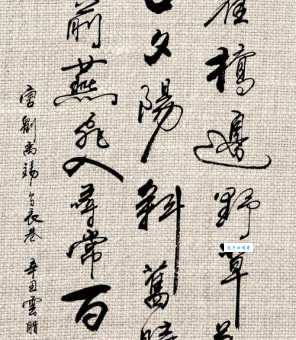 雀橋邊野草
夕陽斜舊時
前燕飛入尋常百
劉禹錫烏衣巷 辛丑雲